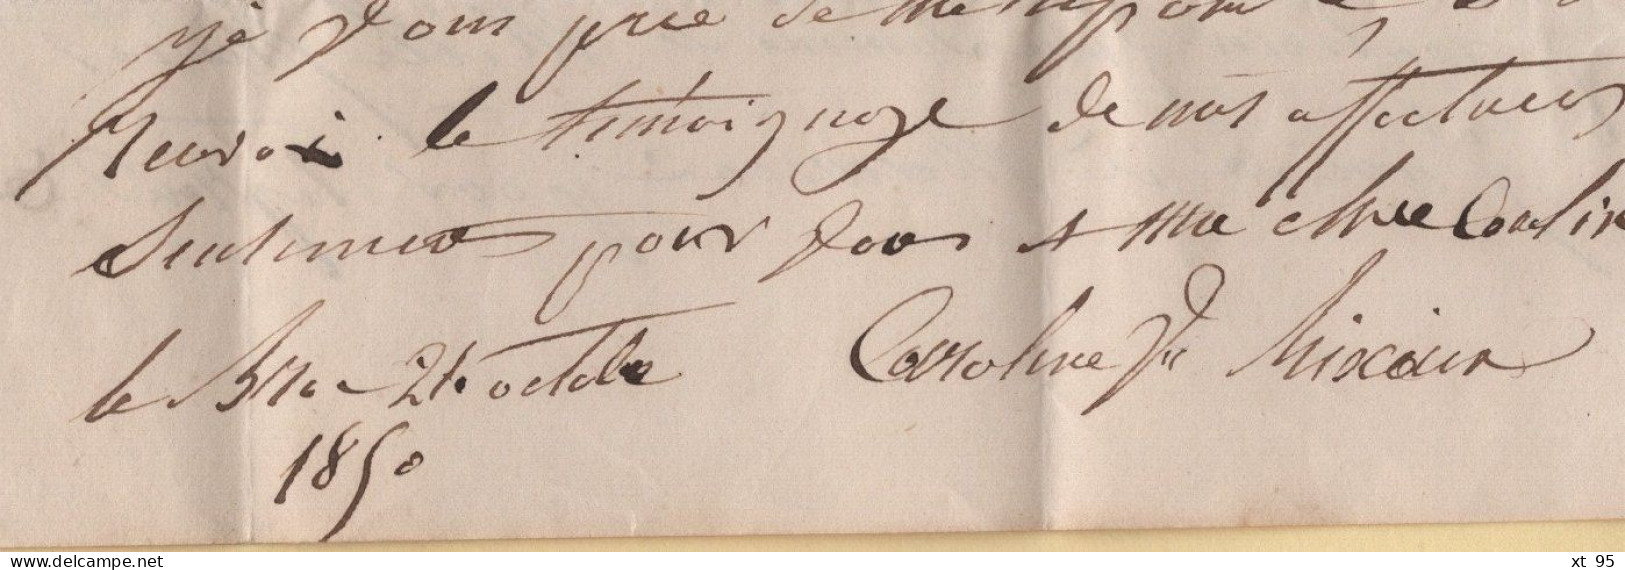 je vous prie de
recevoir le témoignage de nos affectueux
sentiments pour vous et ma chere Cousine
le 21 octobre Caroline
1850
xt 95
delcampe.net